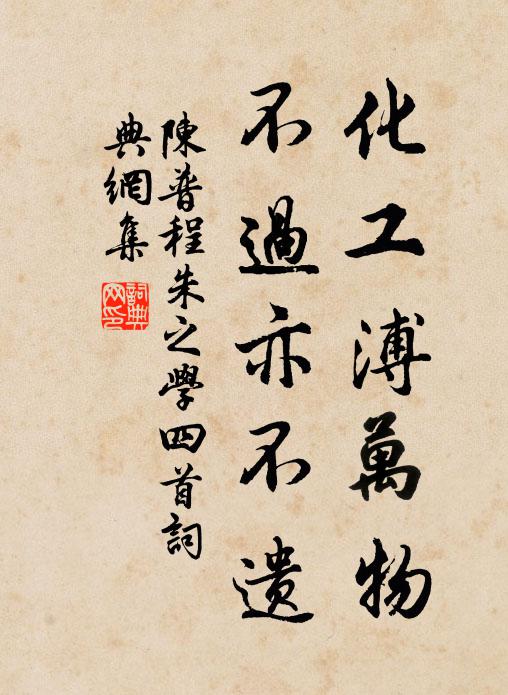 化工溥萬物
不過亦不遺
陳普程朱之學四首詞
典網集
詞典网印